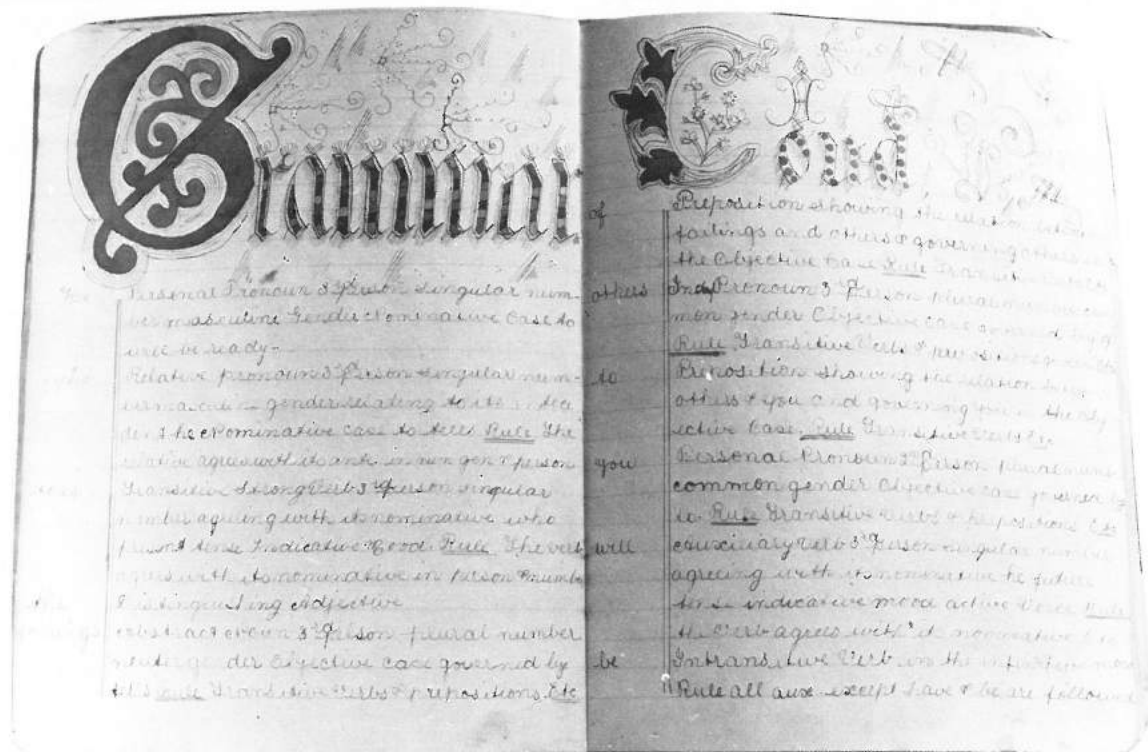 Grammar
He Personal Pronoun 3rd Person singular num-
ber masculine Gender Nominative Case to
will be ready-
who Relative pronoun 3rd Person singular num-
ber masculine gender relating to its antece
dent he Nominative case to tells Rule The
relative agrees with its ante in num gen & person
tells Transitive Strong Verb 3rd Person singular
number agreeing with its nominative who
present tense Indicative Mood Rule The verb
agrees with its nominative in person & number
the Distinguishing Adjective
failings Abstract Noun 3rd Person plural number
neuter gender Objective case governed by
tells rule Transitive Verbs & prepositions Etc
of Preposition showing the relation between
failings and others & governing others in
the Objective Case Rule Transitive Verbs
others Pronoun 3rd Person plural number com
mon gender Objective case governed by of
Rule Transitive Verbs & prepositions
to Preposition showing the relation
others & you and governing you in the obj
ective Case, Rule Transitive Verbs Etc
you Personal Pronoun 2nd Person plural num
common gender Objective case governed by
to Rule Transitive Verbs & Prepositions Etc
will auxiliary verb 3rd person singular number
agreeing with its nominative he future
tense indicative mood active voice Rule
the Verb agrees with its nominative Etc
be Intransitive Verb in the infinitive mood
Rule all aux except have & be are followed